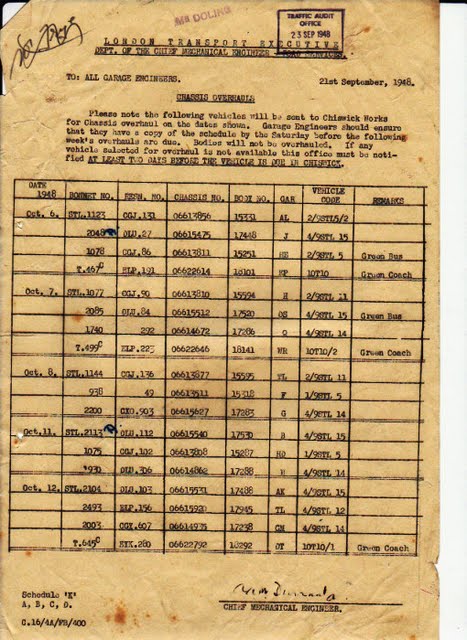 Mr DOLING
TRAFFIC AUDIT
OFFICE
23 SEP 1948
LONDON TRANSPORT EXECUTIVE
DEPT. OF THE CHIEF MECHANICAL ENGINEER
TO: ALL GARAGE ENGINEERS.
21st September, 1948.
CHASSIS OVERHAULS
Please note the following vehicles will be sent to Chiswick Works
for Chassis overhaul on the dates shown. Garage Engineers should ensure
that they have a copy of the schedule by the Saturday before the following
week's overhauls are due. Bodies will not be overhauled. If any
vehicle selected for overhaul is not available this office must be noti-
fied AT LEAST TWO DAYS BEFORE THE VEHICLE IS DUE IN CHISWICK.
DATE 1948 BONNET NO. REGN. NO. CHASSIS NO. BODY NO. GAR VEHICLE CODE REMARKS
Oct. 6. STL.1123 CGJ.131 06613856 15331 AL 2/9STL5/2
2048 DLU.27 06615475 17448 J 4/9STL 15
1078 CGJ.86 06613811 15251 2/9STL 5 Green Bus
T.467C ELP.191 06622614 18101 EP 10T10 Green Coach
Oct. 7. STL.1077 CGJ.90 06613810 15594 H 2/9STL 11
2085 DLU.84 06615512 17520 4/9STL 15 Green Bus
1740 292 06614672 17286 4/9STL 14
T.499C ELP.223 06622646 18141 WR 10T10/2 Green Coach
Oct. 8. STL.1144 CGJ.136 06613877 15595 2/9STL 11
938 49 06613511 15318 F 1/9STL 5
2200 CXO.903 06615627 17283 G 4/9STL 14
Oct.11. STL.2113 DLU.112 06615540 17530 B 4/9STL 15
1075 CGJ.102 06613808 15287 1/9STL 5
1930 DLU.306 06614862 17288 4/9STL 14
Oct. 12. STL.2104 DLU.103 06615531 17488 AK 4/9STL 15
2493 ELP.156 06615920 17945 TL 4/9STL 12
2003 CGX.607 06614935 17238 GM 4/9STL 14
T.645C EYK.280 06622792 18292 10T10/1 Green Coach
Schedule 'K'
A, B, C, D.
C.16/4A/FB/400
CHIEF MECHANICAL ENGINEER.